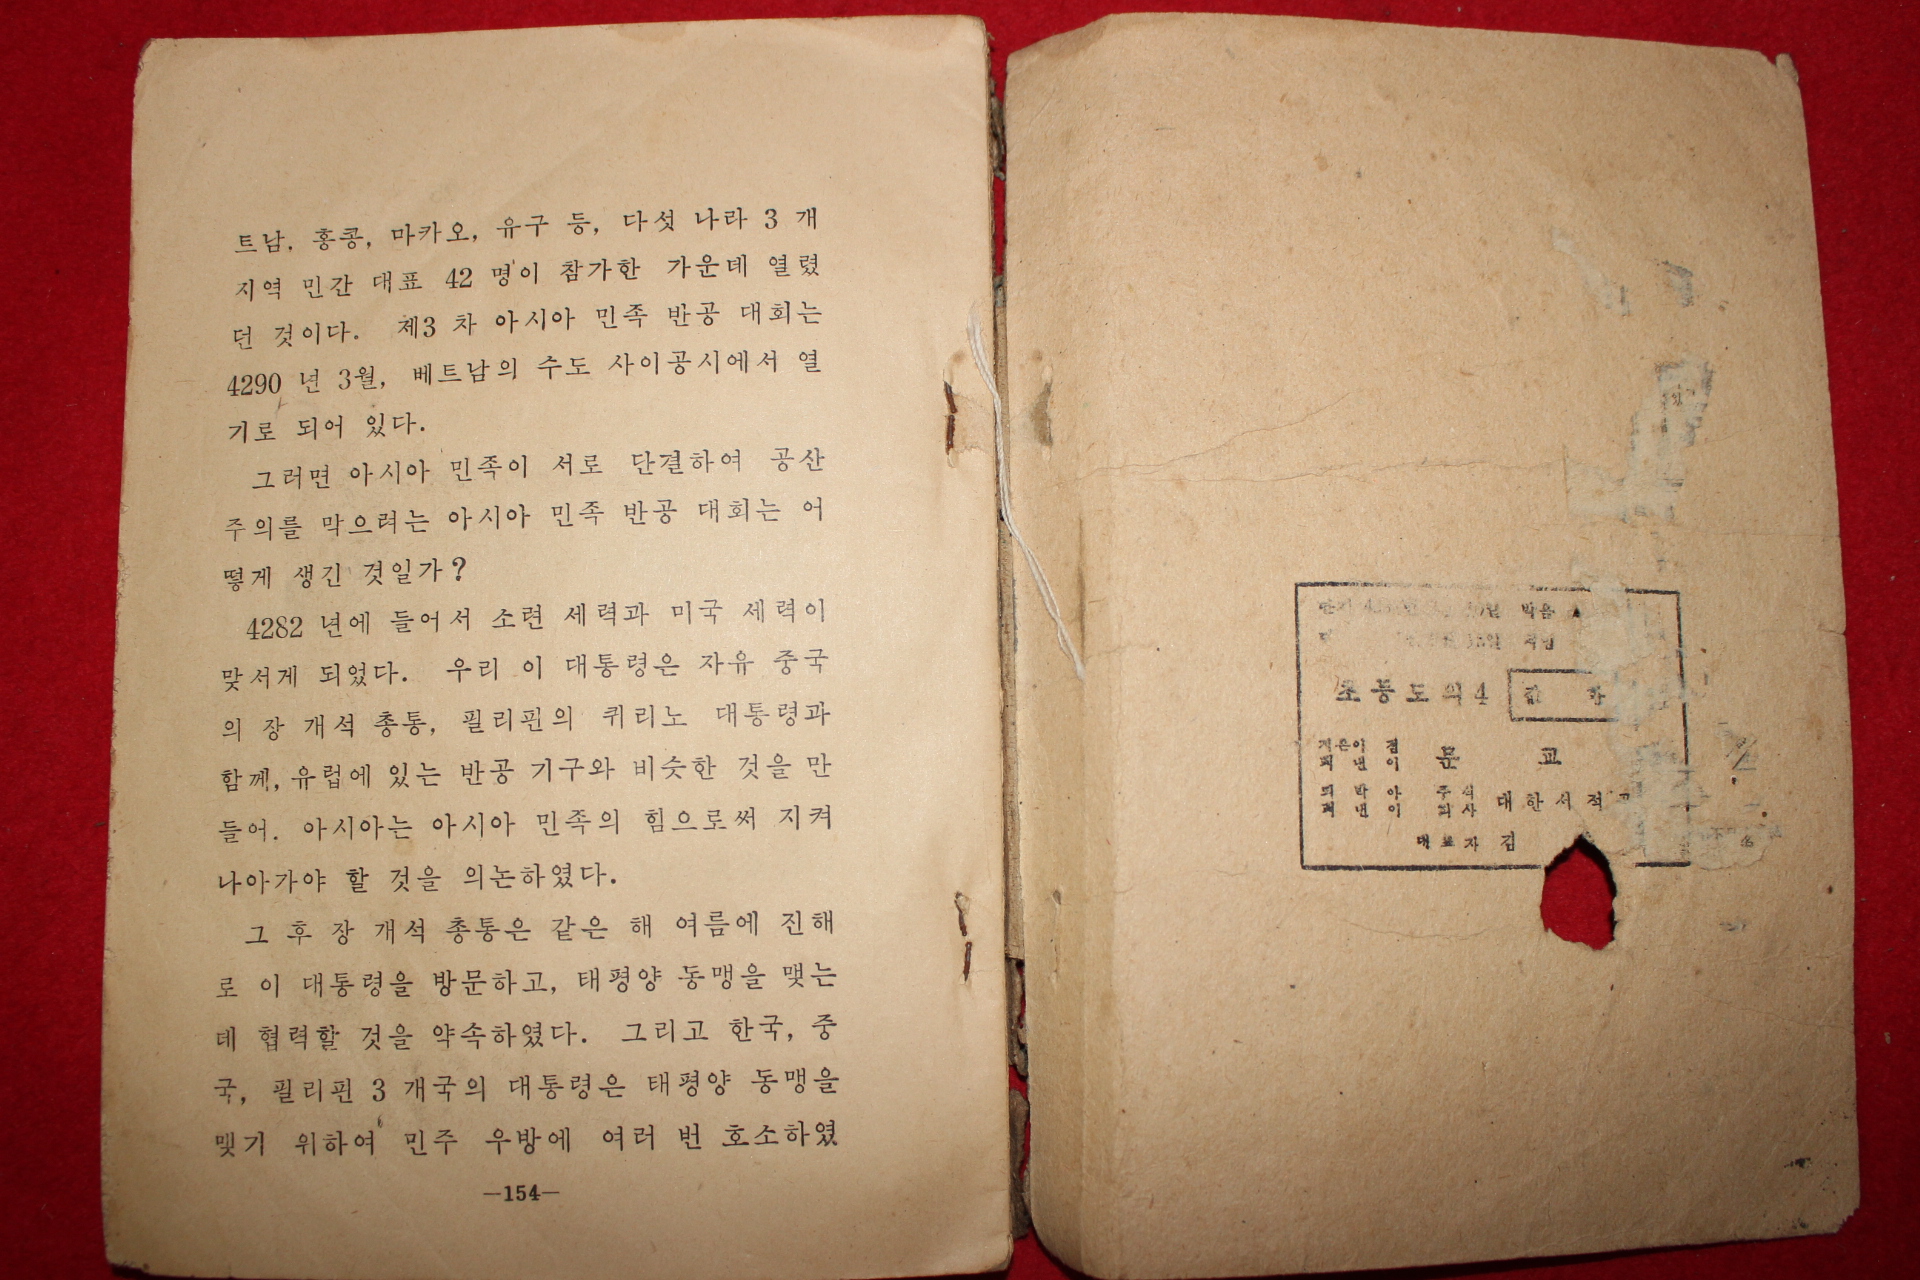 트남, 홍콩, 마카오, 유구 등, 다섯 나라 3 개
지역 민간 대표 42 명이 참가한 가운데 열렸
던 것이다. 제3 차 아시아 민족 반공 대회는
4290 년 3월, 베트남의 수도 사이공시에서 열
기로 되어 있다.
그러면 아시아 민족이 서로 단결하여 공산
주의를 막으려는 아시아 민족 반공 대회는 어
떻게 생긴 것일가?
4282 년에 들어서 소련 세력과 미국 세력이
맞서게 되었다. 우리 이 대통령은 자유 중국
의 장 개석 총통, 필리핀의 퀴리노 대통령과
함께, 유럽에 있는 반공 기구와 비슷한 것을 만
들어. 아시아는 아시아 민족의 힘으로써 지켜
나아가야 할 것을 의논하였다.
그 후 장 개석 총통은 같은 해 여름에 진해
로 이 대통령을 방문하고, 태평양 동맹을 맺는
데 협력할 것을 약속하였다. 그리고 한국, 중
국, 필리핀 3 개국의 대통령은 태평양 동맹을
맺기 위하여 민주 우방에 여러 번 호소하였
—154—
박음
초등도의4 값
지은이 겸 문 교
펴낸이
박아 주식 대한서적
펴낸이 회사
대표자 김